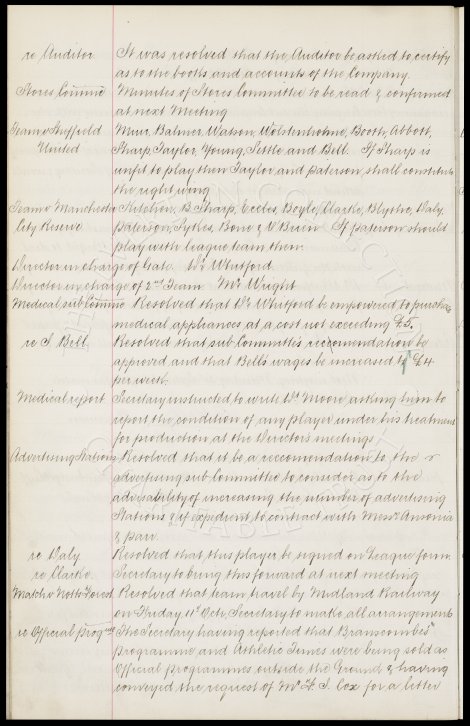 re Auditor It was resolved that the Auditor be asked to certify
as to the books and accounts of the Company.
Stores Comme Minutes of Stores Committee to be read & confirmed
at next Meeting
Team v Sheffield Muir, Balmer, Watson, Wolstenholme, Booth, Abbott,
United Sharp, Taylor, Young, Settle and Bell. If Sharp is
unfit to play then Taylor and paterson shall constitute
the right wing
Team v Manchester Kitchen, B. Sharp, Eccles, Boyle, Clarke, Blythe, Daly,
City Reserve paterson, Sykes, Bone & O'Brien If paterson should
play with league team then.
Director in charge of Gate Dr Whitford
Director in charge of 2nd Team Mr Wright
Medical sub Comme Resolved that Dr Whitford be empowered to purchase
medical appliances at a cost not exceeding £5.
re J. Bell. Resolved that sub Committee's reccomention be
approved and that Bell's wages be increased to £4
per week.
Medical report Secretary instructed to write Dr Moore asking him to
report the condition of any player under his treatment
for production at the Directors meetings
Advertising Stations Resolved that it be a reccomendation to the
advertising sub Committee to consider as to the
advisability of increasing the number of advertising
Stations & if expedient to contract with Messrs
& parr.
re Daly Resolved that this player be signed on League form.
re Clarke. Secretary to bring this forward at next meeting
Match v Notts Forest Resolved that team travel by Midland Railway
on Friday 11th Octr, Secretary to make all arrangements
re Official progme The Secretary having reported that Branscombe's
programme and Athletic Times were being sold as
Official programmes outside the Ground & having
conveyed the request of Mr F. S. Cox for a letter